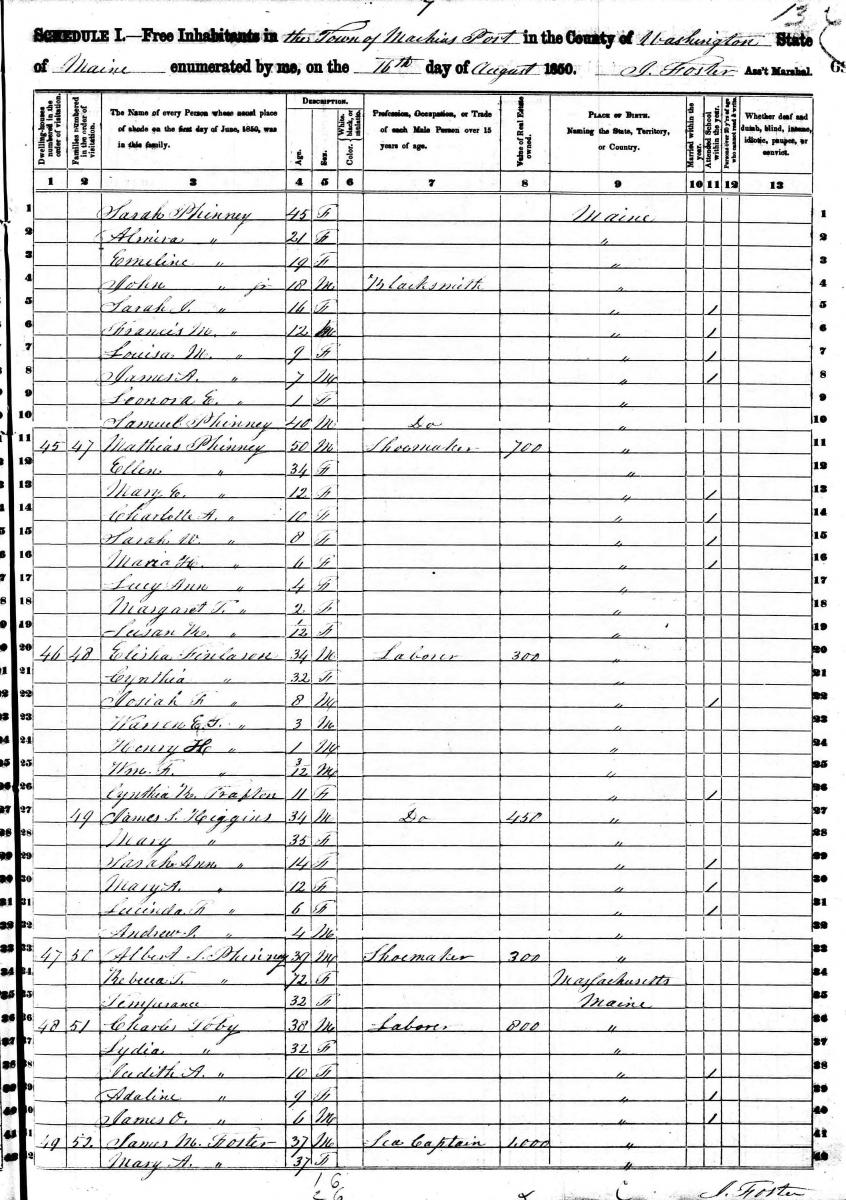 7
13
SCHEDULE I.—Free Inhabitants in the Town of Machias Port in the County of Washington State
of Maine enumerated by me, on the 16th day of August 1850. J. Foster Ass't Marshal.
Dwelling-houses numbered in the order of visitation. Families numbered in the order of visitation. The Name of every Person whose usual place of abode on the first day of June, 1850, was in this family. DESCRIPTION. Age. Sex. Color, White, black, or mulatto. Profession, Occupation, or Trade of each Male Person over 15 years of age. Value of Real Estate owned. PLACE OF BIRTH. Naming the State, Territory, or Country. Married within the year. Attended School within the year. Persons over 20 y'rs of age who cannot read & write. Whether deaf and dumb, blind, insane, idiotic, pauper, or convict.
1 2 3 4 5 6 7 8 9 10 11 12 13
1 Sarah Phinney 45 F Maine 1
2 Almira " 21 F " 2
3 Emeline " 19 F " 3
4 John " jr 18 M Blacksmith " 4
5 Sarah J. " 16 F " 1 5
6 Francis M. " 12 M " 1 6
7 Louisa M. " 9 F " 1 7
8 James A. " 7 M " 1 8
9 Leonora E. " 1 F " 9
10 Samuel Phinney 40 M Do " 10
11 45 47 Mathias Phinney 50 M Shoemaker 700 " 11
12 Ellen " 34 F " 12
13 Mary E. " 12 F " 1 13
14 Charlotte A. " 10 F " 1 14
15 Sarah W. " 8 F " 1 15
16 Maria H. " 6 F " 1 16
17 Lucy Ann " 4 F " 17
18 Margaret T. " 2 F " 18
19 Susan M. " 1/12 F " 19
20 46 48 Elisha Finlason 34 M Laborer 300 " 20
21 Cynthia " 32 F " 21
22 Josiah F " 8 M " 1 22
23 Warren E. " 3 M " 23
24 Henry H " 1 M " 24
25 Wm. F. " 3/12 M " 25
26 Cynthia M. Trafton 11 F " 1 26
27 49 James S. Higgins 34 M Do 450 " 27
28 Mary " 35 F " 28
29 Sarah Ann " 14 F " 1 29
30 Mary A. " 12 F " 1 30
31 Lucinda F " 6 F " 1 31
32 Andrew J. " 4 M " 32
33 47 50 Albert S. Phinney 39 M Shoemaker 300 " 33
34 Rebecca T. " 72 F Massachusetts 34
35 Temperance 32 F Maine 35
36 48 51 Charles Toby 38 M Laborer 800 " 36
37 Lydia " 32 F " 37
38 Judith A. " 10 F " 1 38
39 Adaline " 9 F " 1 39
40 James O. " 6 M " 1 40
41 49 52. James M. Foster 37 M Sea Captain 1.000 " 41
42 Mary A. " 37 F "
16
26
J. Foster